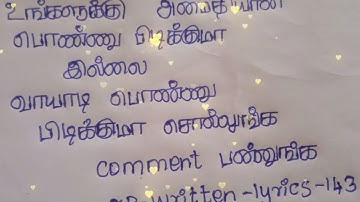 உங்களுக்கு அமைதியான
பொண்ணு பிடிக்குமா
இல்லை
வாயாடி பொண்ணு
பிடிக்குமா சொல்லுங்க
comment பண்ணுங்க
written-lyrics-143